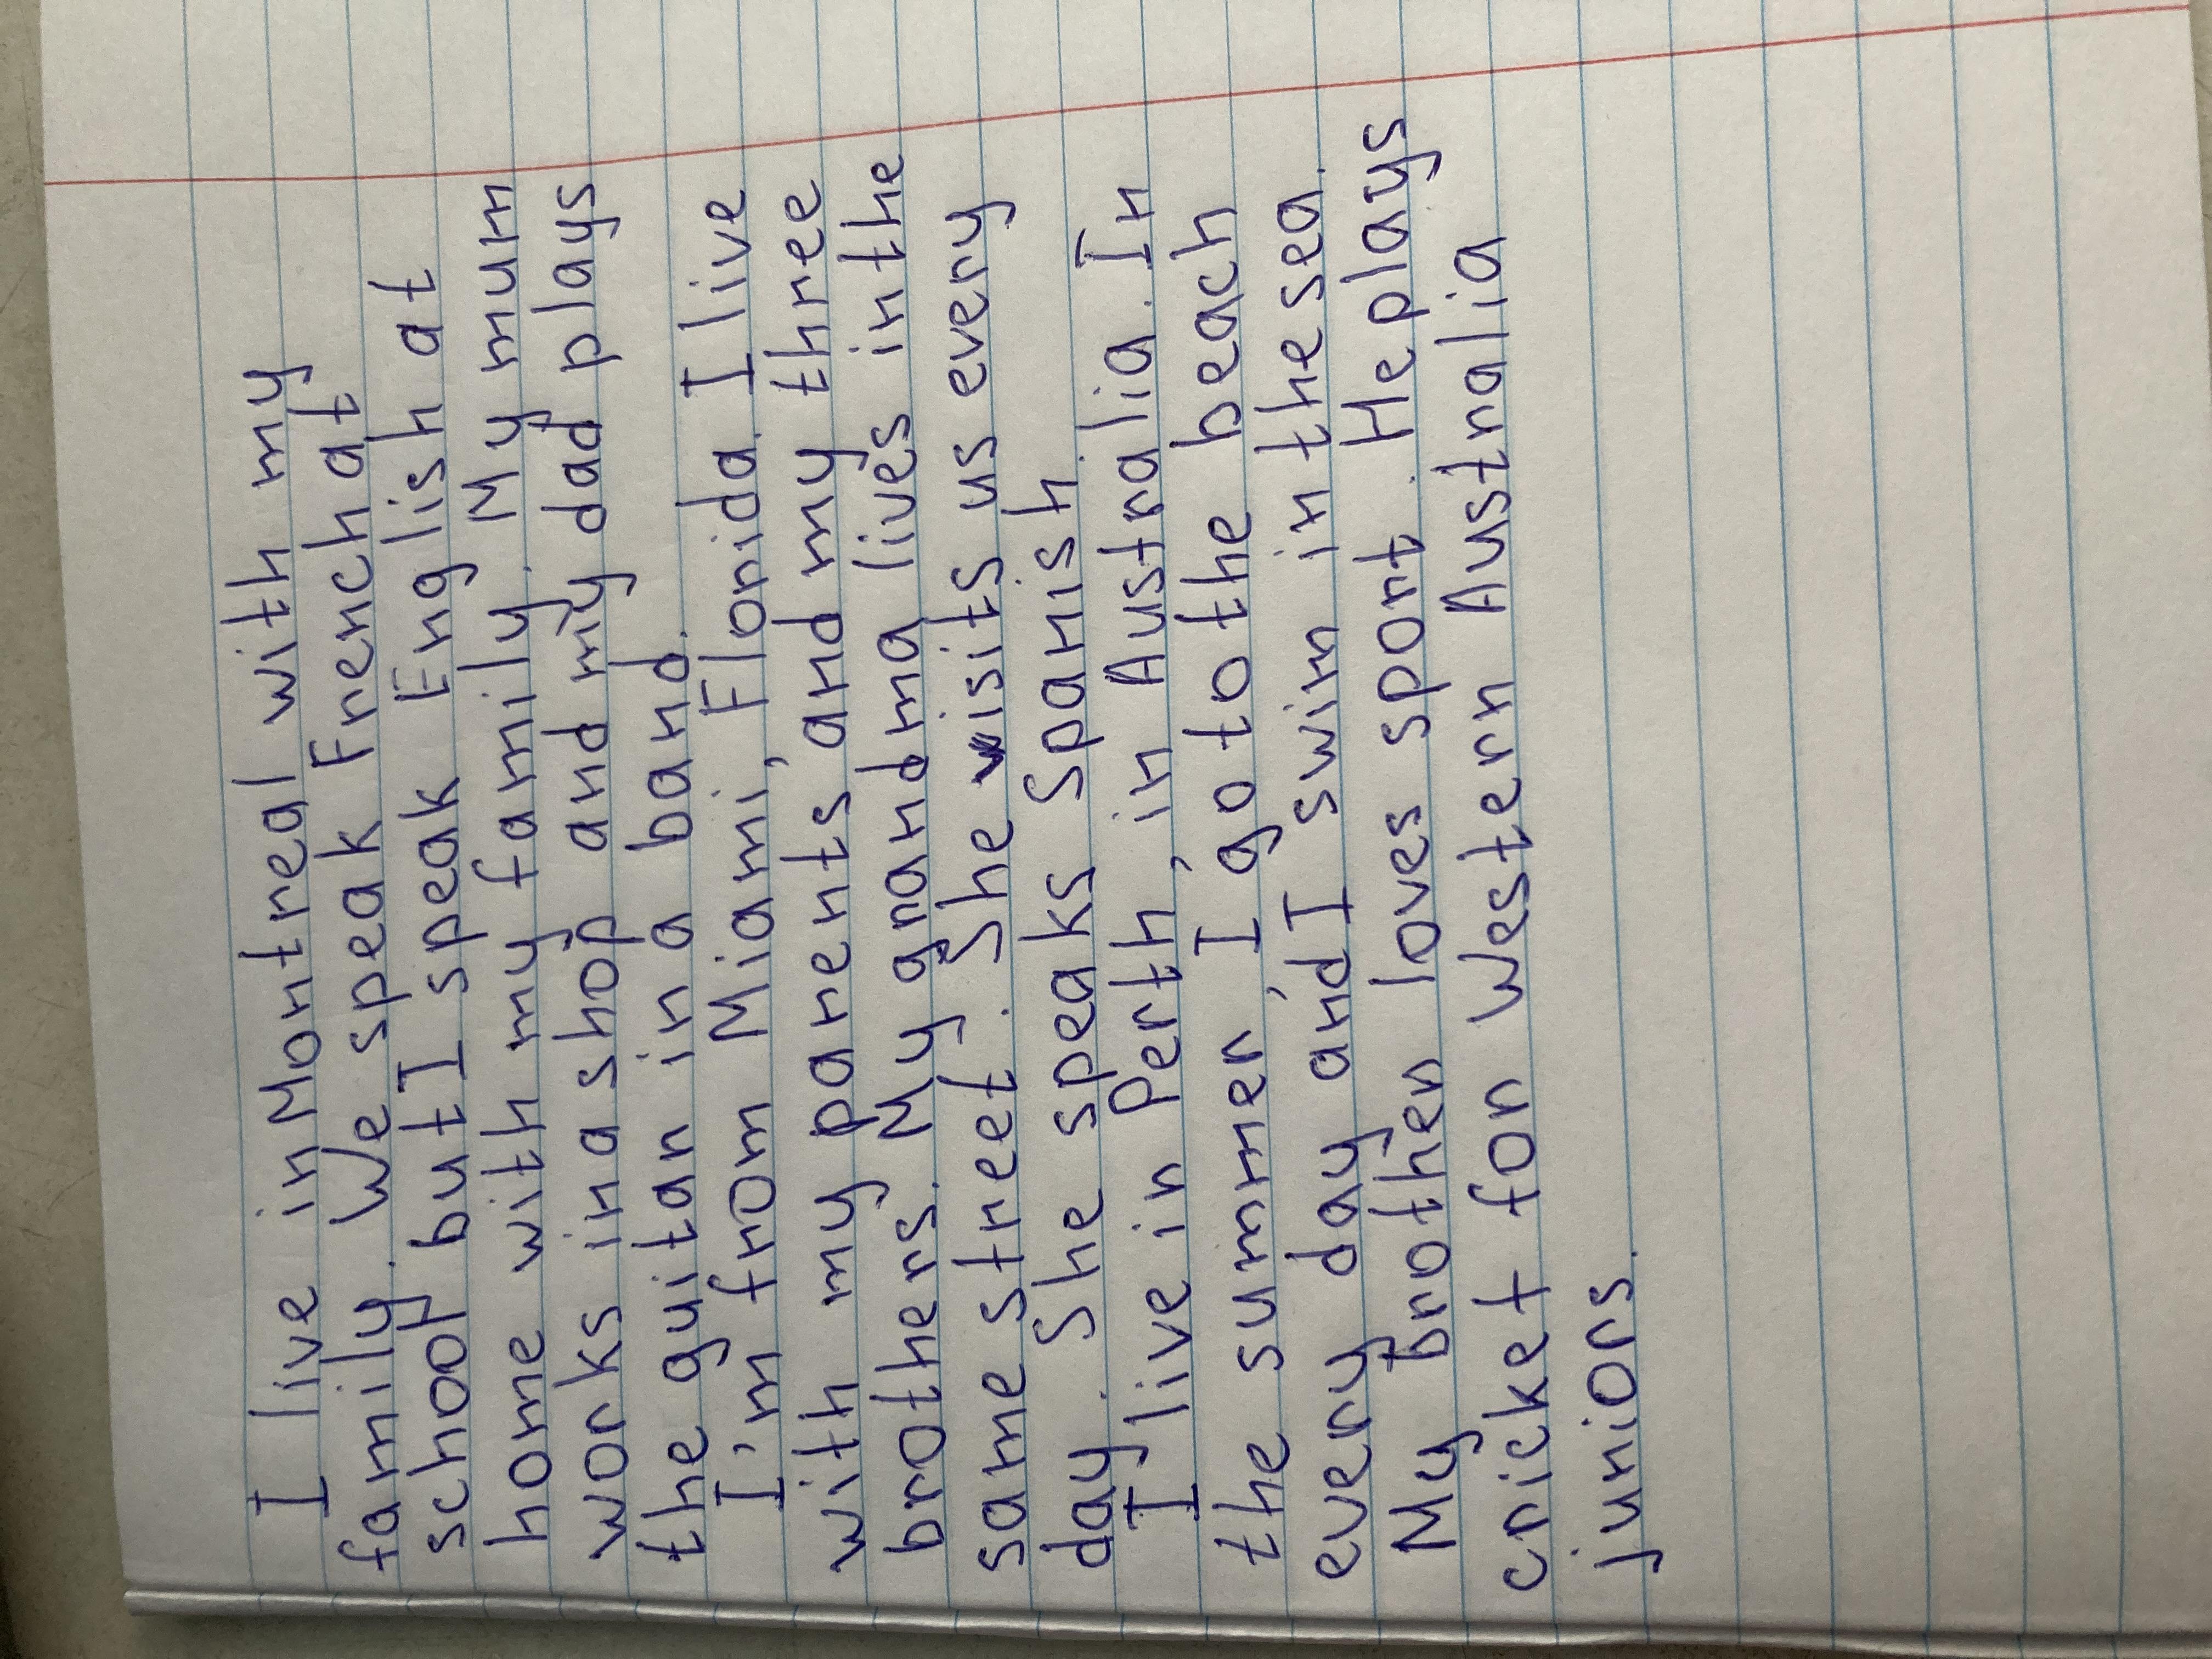 I live in Montreal with my
family. We speak French at
school but I speak English at
home with my family. My mum
works in a shop and my dad plays
the guitar in a band.
I'm from Miami, Florida. I live
with my parents and my three
brothers. My grandma lives in the
same street. She visits us every
day. She speaks Spanish.
I live in Perth, in Australia. In
the summer, I go to the beach
every day and I swim in the sea.
My brother loves sport. He plays
cricket for Western Australia
juniors.